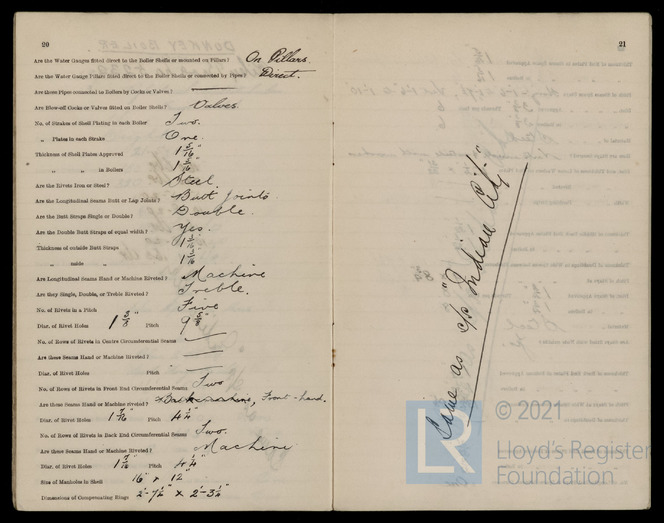 20
Are the Water Gauges fitted direct to the Boiler Shells or mounted on Pillars? On Pillars.
Are the Water Gauge Pillars fitted direct to the Boiler Shells or connected by Pipes? Direct.
Are these Pipes connected to Boilers by Cocks or Valves?
Are Blow-off Cocks or Valves fitted on Boiler Shells? Valves.
No. of Strakes of Shell Plating in each Boiler Two.
„ Plates in each Strake One.
Thickness of Shell Plates Approved 1 5/16"
„ „ in Boilers 1 5/16"
Are the Rivets Iron or Steel? Steel.
Are the Longitudinal Seams Butt or Lap Joints? Butt Joints
Are the Butt Straps Single or Double? Double.
Are the Double Butt Straps of equal width? Yes.
Thickness of outside Butt Straps
„ inside „
Are Longitudinal Seams Hand or Machine Riveted? Machine
Are they Single, Double, or Treble Riveted? Treble.
No. of Rivets in a Pitch Five
Diar. of Rivet Holes 1 3/8" Pitch 9 5/8"
No. of Rows of Rivets in Centre Circumferential Seams
Are these Seams Hand or Machine Riveted?
Diar. of Rivet Holes Pitch
No. of Rows of Rivets in Front End Circumferential Seams Two
Are these Seams Hand or Machine riveted? Front-hand.
Diar. of Rivet Holes 1 7/16" Pitch 4 1/4"
No. of Rows of Rivets in Back End Circumferential Seams Two.
Are these Seams Hand or Machine Riveted? Machine
Diar. of Rivet Holes Pitch 4 1/4"
Size of Manholes in Shell 16" x 12"
Dimensions of Compensating Rings 2'-7 1/2" x 2'-3 1/2"
21
Same as s/s "Indian City"
LR
© 2021
Lloyd's Register
Foundation